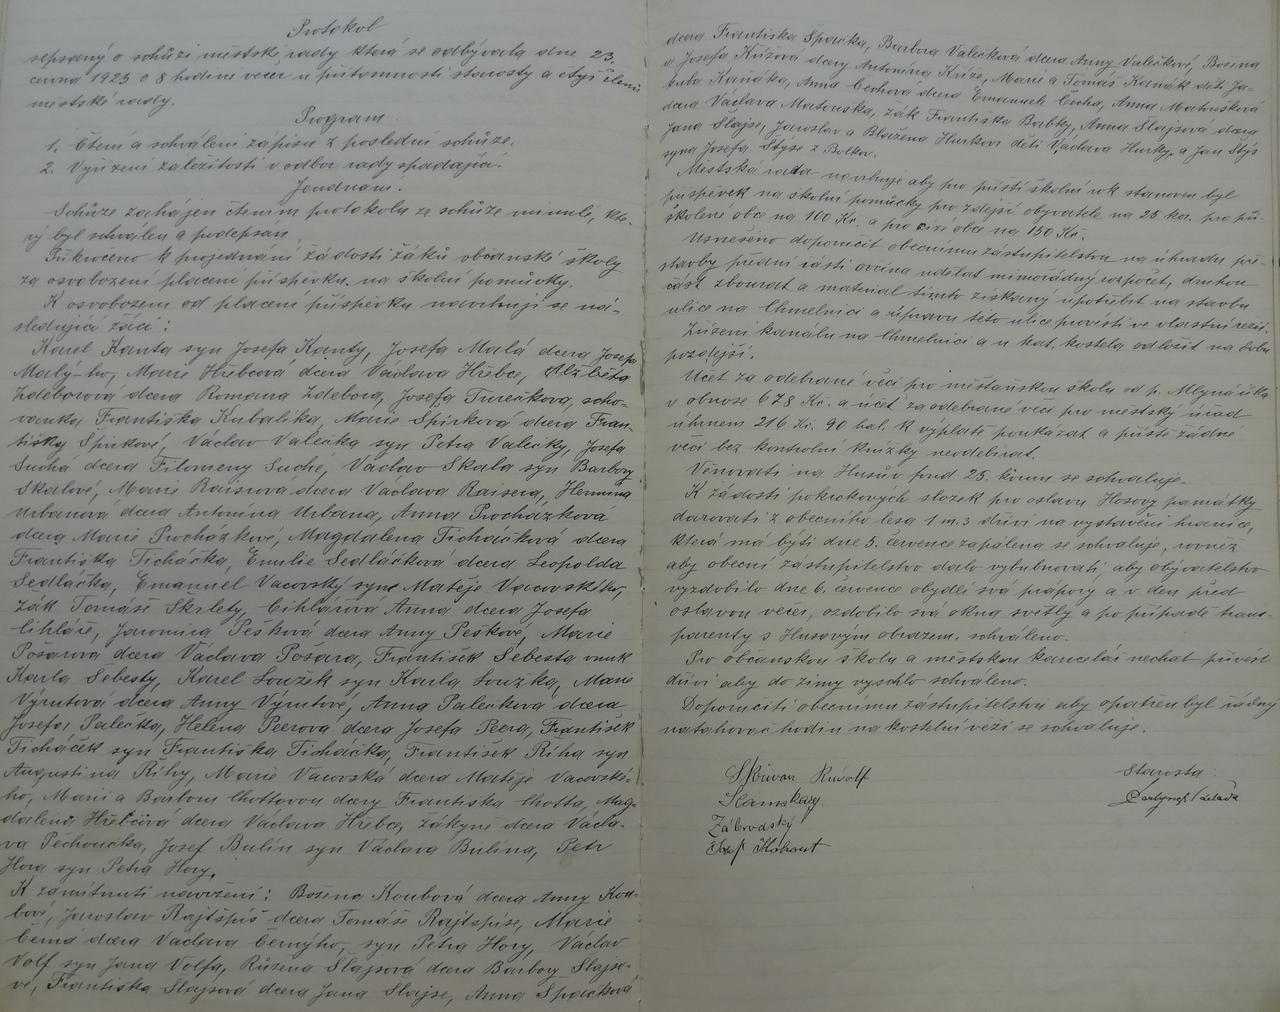 Protokol
sepsaný o schůzi městské rady která se odbývala dne 23.
června 1925 o 8 hodině večer u přítomnosti starosty a čtyř členů
městské rady.
Program.
1. Čtení a schválení zápisu z poslední schůze.
2. Vyřízení záležitostí v odbor rady spadající.
Jendnání.
Schůze zahájen čtením protokolu ze schůze minulé, kte-
rý byl schválen a podepsán.
Přikročeno k projednání žádostí žáků občanské školy
za osvobození placení příspěvku na školní pomůcky.
K osvobození od placení příspěvku navrhuji se ná-
sledující žáci:
Karel Kanta syn Josefa Kanty, Josefa Malá dcera Josefa
Malý-ho, Marie Hřebcová dcera Václava Hřebce, Alžběta
Zdeborová dcera Romana Zdebora, Josefa Turečkova, scho-
vanka Františka Kubalíka, Marie Spirková dcera Fran-
tišky Spirkové, Václav Valečka syn Petra Valečky, Josefa
Suchá dcera Filomeny Suché, Václav Skala syn Barbory
Skalové, Marie Raisrová dcera Václava Raisera, Hermina
Urbanova dcera Antonína Urbana, Anna Procházková
dcera Marie Procházkové, Magdalena Ticháčková dcera
Františka Ticháčka, Emilie Sedláčková dcera Leopolda
Sedláčka, Emanuel Vacovský syn Matěje Vacovského,
žák Tomáše Škrlety, Cihlářova Anna dcera Josefa
Cihláře, Jaromira Pešková dcera Anny Peškové, Marie
Pošarova dcera Václava Pošara, František Šebesta vnuk
Karla Šebesty, Karel Louzek syn Karla Louzka, Marie
Výrutová dcera Anny Výrutové, Anna Palečkova dcera
Josefa Palečka, Helena Peerova dcera Josefa Peera, František
Ticháček syn Františka Ticháčka, František Říha syn
Augustina Říhy, Marie Vacovská dcera Matěje Vacovské-
ho, Marii a Barboru Lhottovou dcery Františka Lhotta, Mag-
dalena Hřebcová dcera Václava Hřebce, žákyně dcera Václa-
va Pechoučka, Josef Bulín syn Václava Bulína, Petr
Hora syn Petra Hory.
K zamítnutí navrženi: Božena Koubová dcera Anny Kou-
bové, Jaroslav Rajtšpis dcera Tomáše Rajtspise, Marie
Černá dcera Václava Černýho, syn Petra Hory, Václav
Volf syn Jana Volfa, Růžena Slajsová dcera Barbory Slajso-
vé, Františka Slajsová dcera Jana Slajse, Anna Spačková
dcera Františka Spačka, Barbora Valečková dcera Anny Valečkové, Božena
a Josefa Křížová dcery Antonína Kříže, Marie a Tomáš Kaňák děti Ja-
kuba Kaňáka, Anna Čechová dcera Emanuela Čecha, Anna Matoušková
dcera Václava Matouska, žák Františka Babky, Anna Slajsová dcera
Jana Šlajse, Jaroslav a Blažena Hurkovi děti Václava Hurky, a Jan Štys
syna Josefa Štyse z Bolkov.
Městská rada navrhuje aby pro příští školní rok stanoven byl
příspěvek na školní pomůcky pro zdejší obyvatele na 25 kor. pro při-
školené obce na 100 Kč. a pro cizé obce na 150 Kč.
Usnešeno doporučit obecnímu zástupitelstvu na úhradu pře-
stavby přední části ovčína udělat mimořádný rozpočet, druhou
část zbourat a material tímto získaný upotřebit na stavbu
ulice na Chmelnici a úpravu této ulice provésti ve vlastní režii.
Zřízení kanálu na Chmelnici a u kat. kostela odložit na dobu
pozdější.
Účet za odebrané věci pro měšťanskou školu od p. Mlynáčika
v obnose 678 Kč. a účet za odebrané věci pro městský úřad
úhrnem 216 Kč. 90 hal. k výplatě poukázat a příště žádné
věci bez kontrolní knížky neodebírat.
Věnovati na Husův fond 25. korun se schvaluje.
K žádosti pokrokových složek pro oslavu Husovy památky
darovati z obecního lesa 1 m.3 dříví na vystavění hranice,
která má býti dne 5. července zapálena se schvaluje, rovněž
aby obecní zástupitelstvo dalo vybubnovati, aby obyvatelstvo
vyzdobilo dne 6. července obydlí svá prápory a v den před
oslavou večer, ozdobilo svá okna světly a po případě trans-
parenty s Husovým obrazem. schváleno.
Pro občanskou školu a městskou kancelář nechat přivést
dříví aby do zimy vyschlo schváleno.
Doporučiti obecnímu zástupitelstvu aby opatřen byl řádný
natahovač hodin na kostelní věži se schvaluje.
Skřivan Rudolf
Starosta:
Zábrodský
Josef Kohout